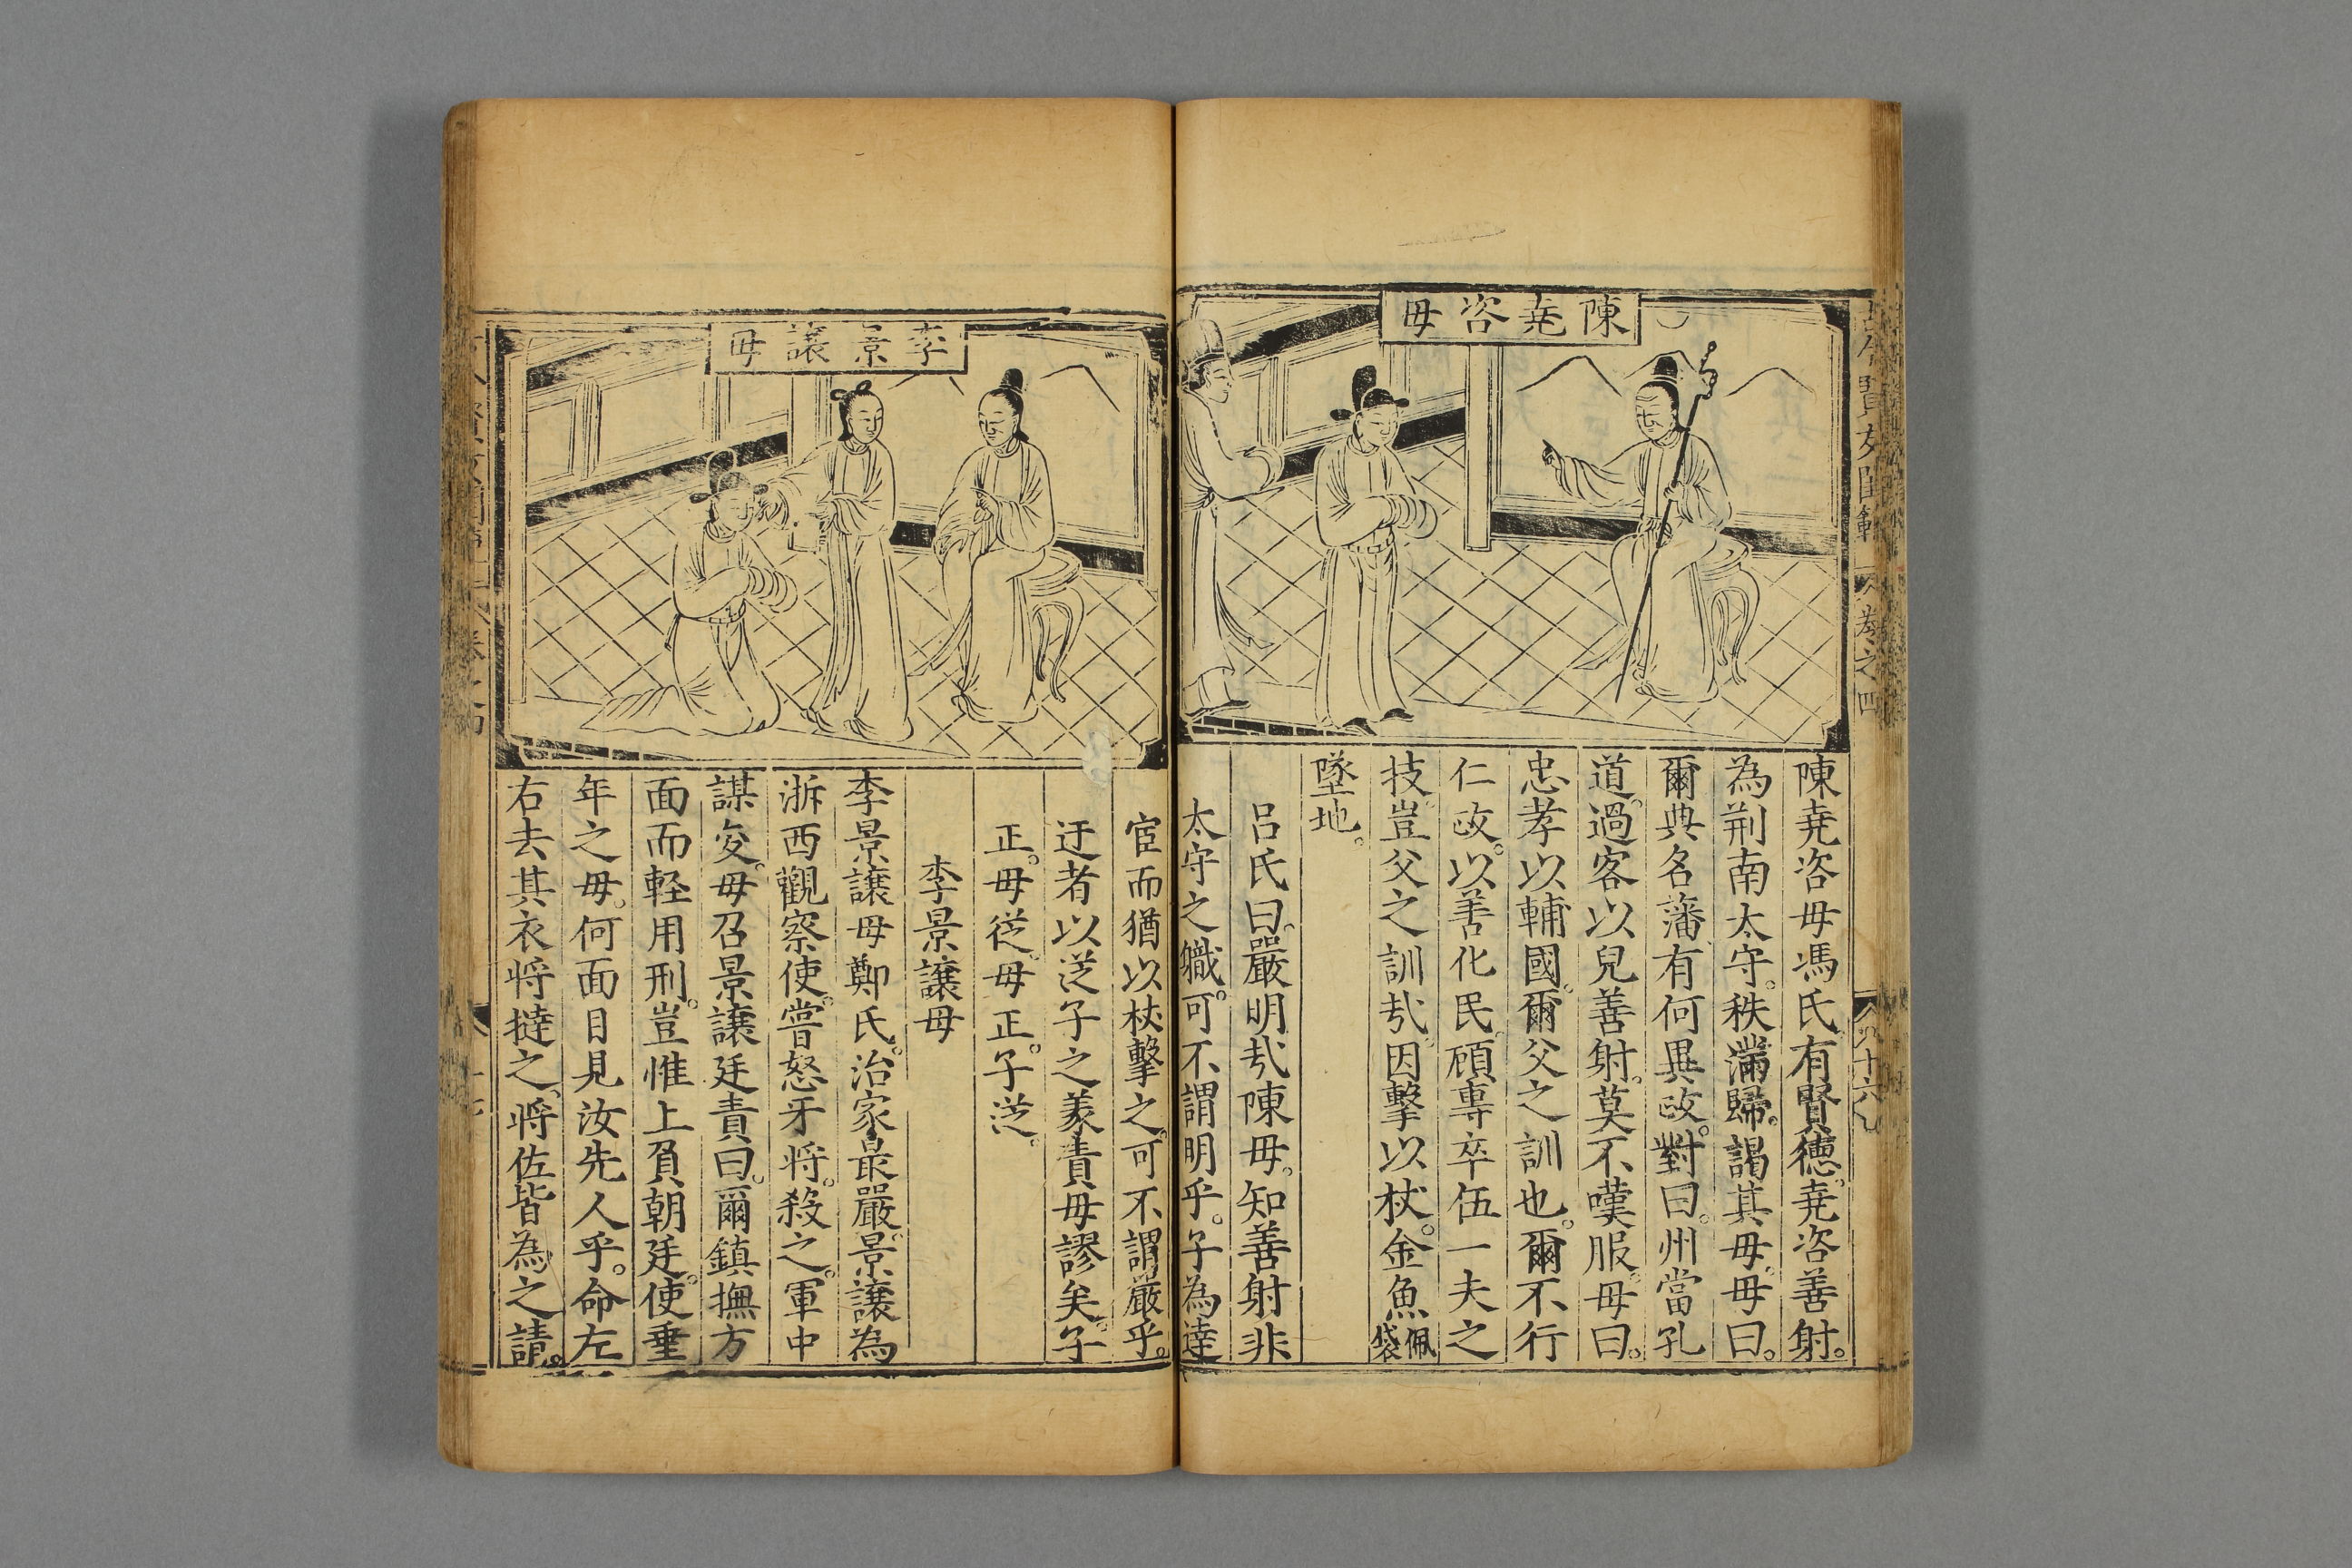 陳堯咨毋
陳堯咨毋馮氏。有賢德。堯咨善射。
為荆南太守。秩滿歸。謁其毋。毋曰。
爾典名藩。有何異政。對曰。州當孔
道。過客以兒善射。莫不嘆服。毋曰。
忠孝以輔國。爾父之訓也。爾不行
仁政。以善化民。顧專卒伍一夫之
技。豈父之訓㢤。因擊以杖。金魚佩袋
墜地。
呂氏曰。嚴明㢤陳毋。知善射非
太守之職。可不謂明乎。子為達
李景讓毋
宦而猶以杖擊之。可不謂嚴乎。
迂者以從子之義責毋謬矣。子
正。毋從。毋正。子從。
李景讓毋
李景讓毋鄭氏。治家最嚴。景讓為
浙西觀察使。嘗怒牙將。殺之。軍中
謀変。毋召景讓廷責曰。爾鎮撫方
面而軽用刑。豈惟上負朝廷。使垂
年之毋。何面目見汝先人乎。命左
右去其衣将撻之。将佐皆為之請。
古今賢女閨範
卷之四
十六